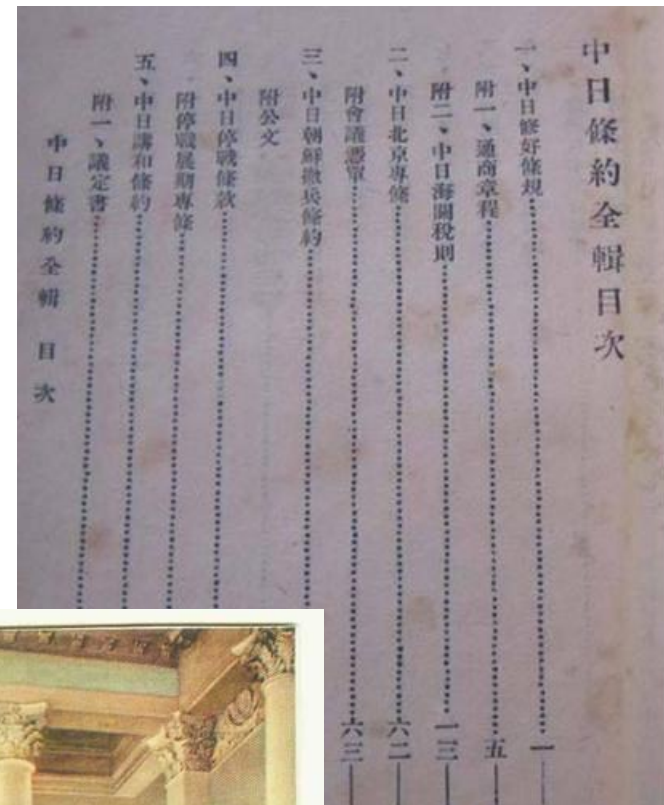 中日條約全輯目次
一、中日修好條規……一
附一、通商章程……五
附二、中日海關稅則……一三
二、中日北京專條……六二
附會議憑單……六三
三、中日朝鮮撤兵條約
附公文
四、中日停戰條款
附停戰展期專條
五、中日講和條約
附一、議定書
中日條約全輯 目次